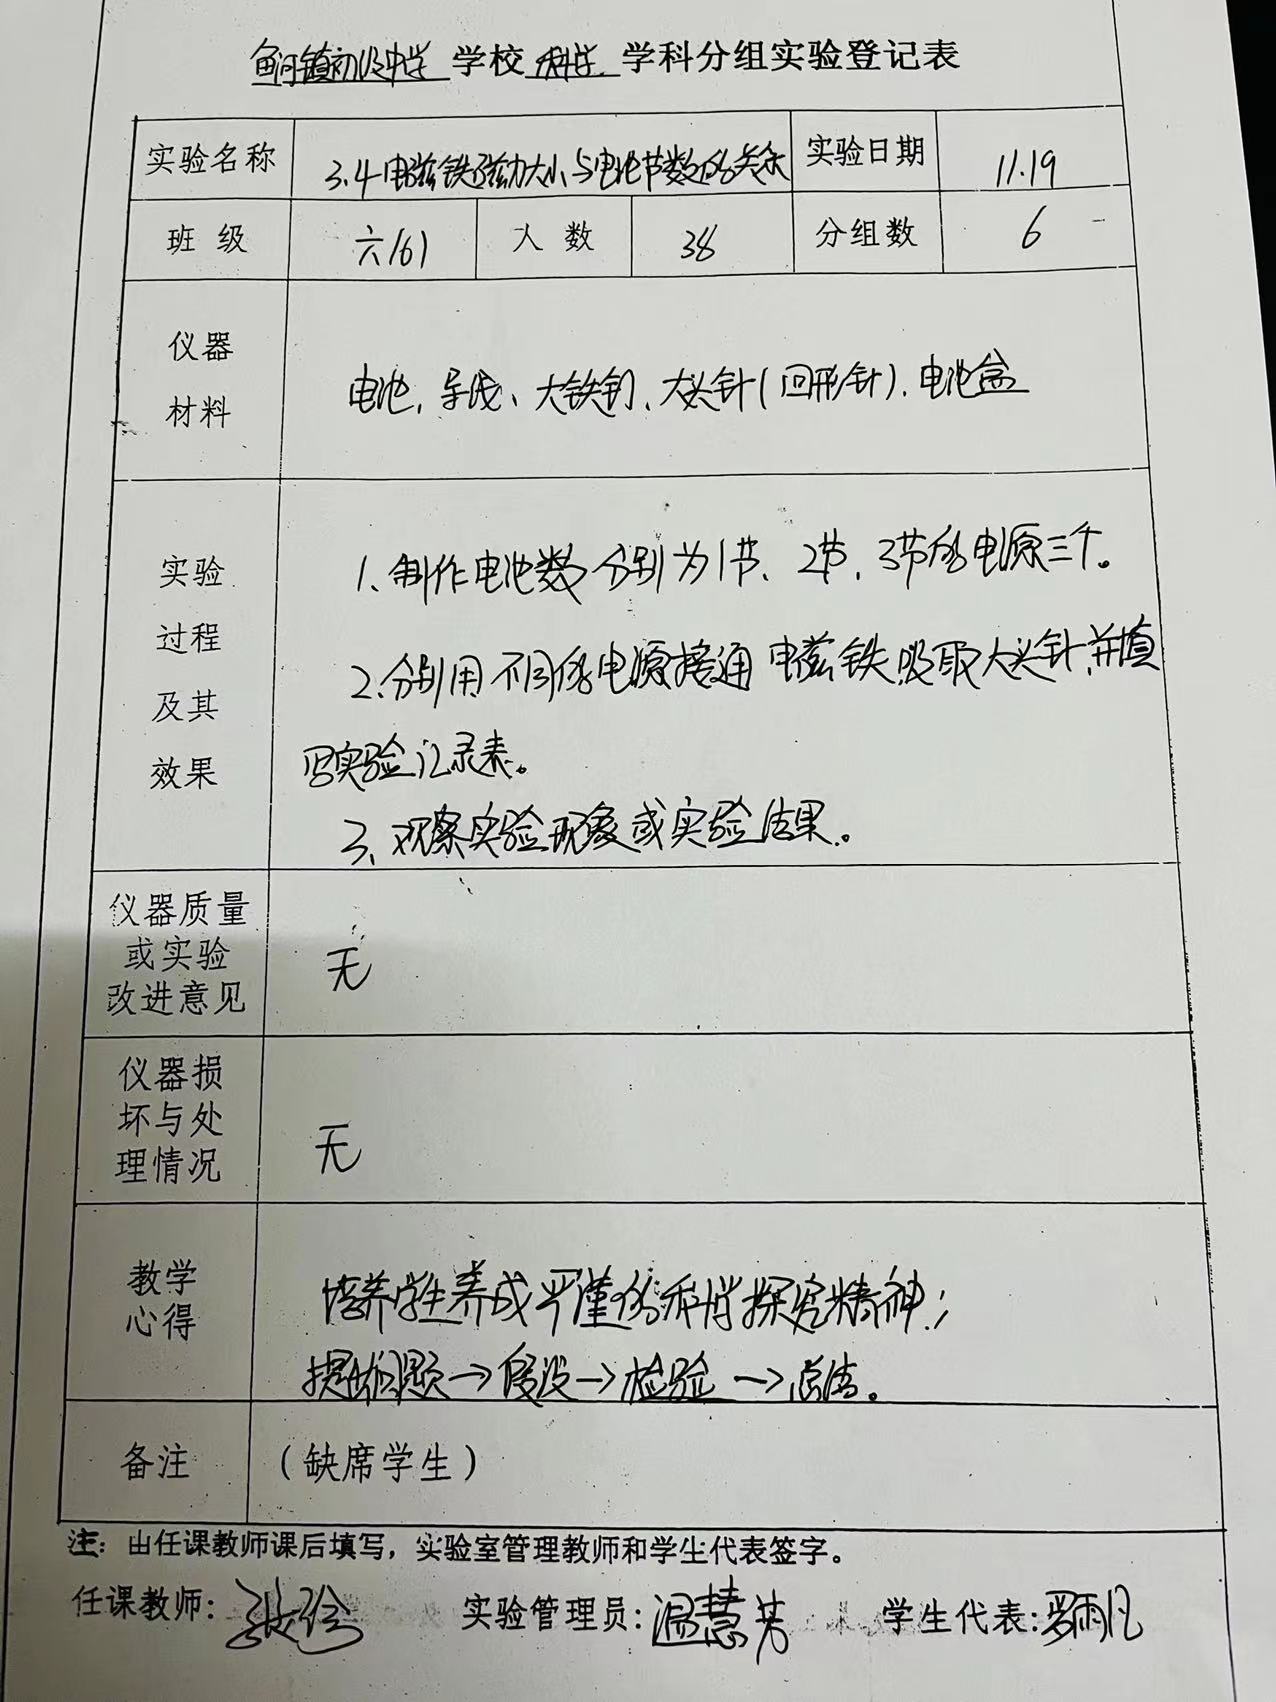 鱼河镇初级中学 学校 科学 学科分组实验登记表
实验名称 3.4电磁铁磁力大小与电池节数的关系 实验日期 11.19
班级 六(6) 人数 38 分组数 6
仪器
材料
电池、导线、大铁钉、大头针(回形针)、电池盒
实验
过程
及其
效果
1、制作电池数分别为1节、2节、3节的电源三个。
2、分别用不同的电源接通电磁铁吸取大头针,并填
写实验记录表。
3、观察实验现象或实验结果。
仪器质量
或实验
改进意见
无
仪器损
坏与处
理情况
无
教学
心得
培养学生养成严谨的科学探究精神;
提出问题→假设→检验→总结。
备注 (缺席学生)
注:由任课教师课后填写,实验室管理教师和学生代表签字。
任课教师: 实验管理员:温慧芳 学生代表:罗雨凡